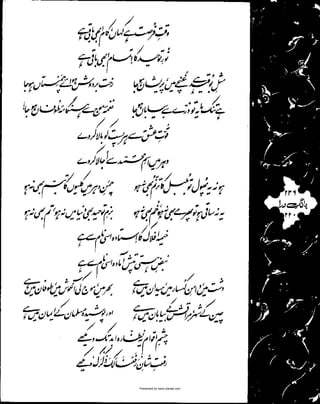 وقتِ فرصت ہے کہاں، کام ابھی باقی ہے
نورِ توحید کا اتمام ابھی باقی ہے
مثلِ بو قید ہے غنچے میں، پریشاں ہو جا رخت بر دوش ہوائے چمنستاں ہو جا
ہے تنک مایہ تو ذرّے سے بیاباں ہو جا نغمۂ موج سے ہنگامۂ طوفاں ہو جا
قوّتِ عشق سے ہر پست کو بالا کر دے
دہر میں اسمِ محمدؐ سے اجالا کر دے
ہو نہ یہ پھول تو بلبل کا ترنّم بھی نہ ہو چمنِ دہر میں کلیوں کا تبسّم بھی نہ ہو
یہ نہ ساقی ہو تو پھر مے بھی نہ ہو، خم بھی نہ ہو بزمِ توحید بھی دنیا میں نہ ہو، تم بھی نہ ہو
خیمہ افلاک کا استادہ اسی نام سے ہے
نبضِ ہستی تپش آمادہ اسی نام سے ہے
دشت میں، دامنِ کہسار میں، میدان میں ہے بحر میں، موج کی آغوش میں، طوفان میں ہے
چین کے شہر، مراقش کے بیابان میں ہے اور پوشیدہ مسلمان کے ایمان میں ہے
چشمِ اقوام یہ نظّارہ ابد تک دیکھے
رفعتِ شانِ رفعنا لک ذکرک دیکھے
بانگِ درا
Presented by www.ziaraat.com